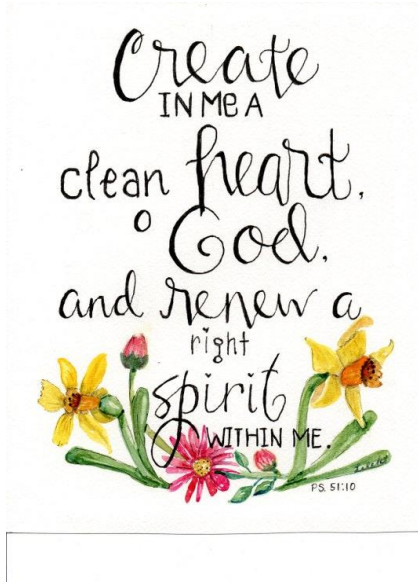 Create
IN ME A
clean heart,
o God,
and renew a
right
spirit
WITHIN ME.
PS. 51:10